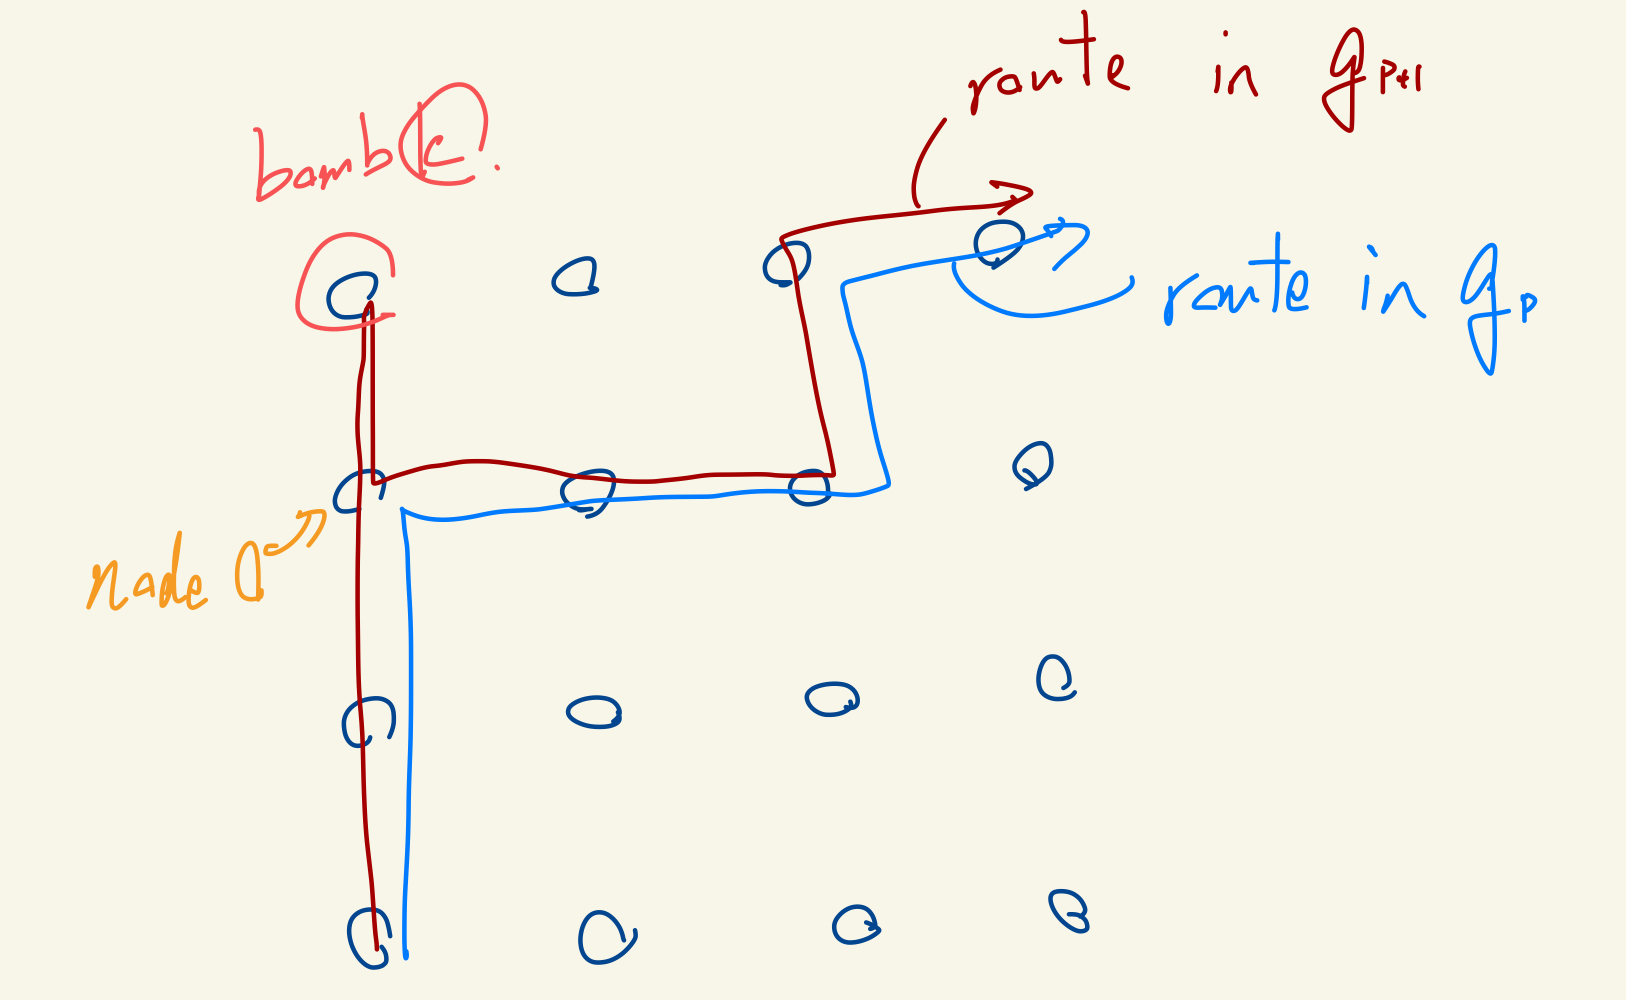 route in g_{p+1}
bomb k.
route in g_p
node 0